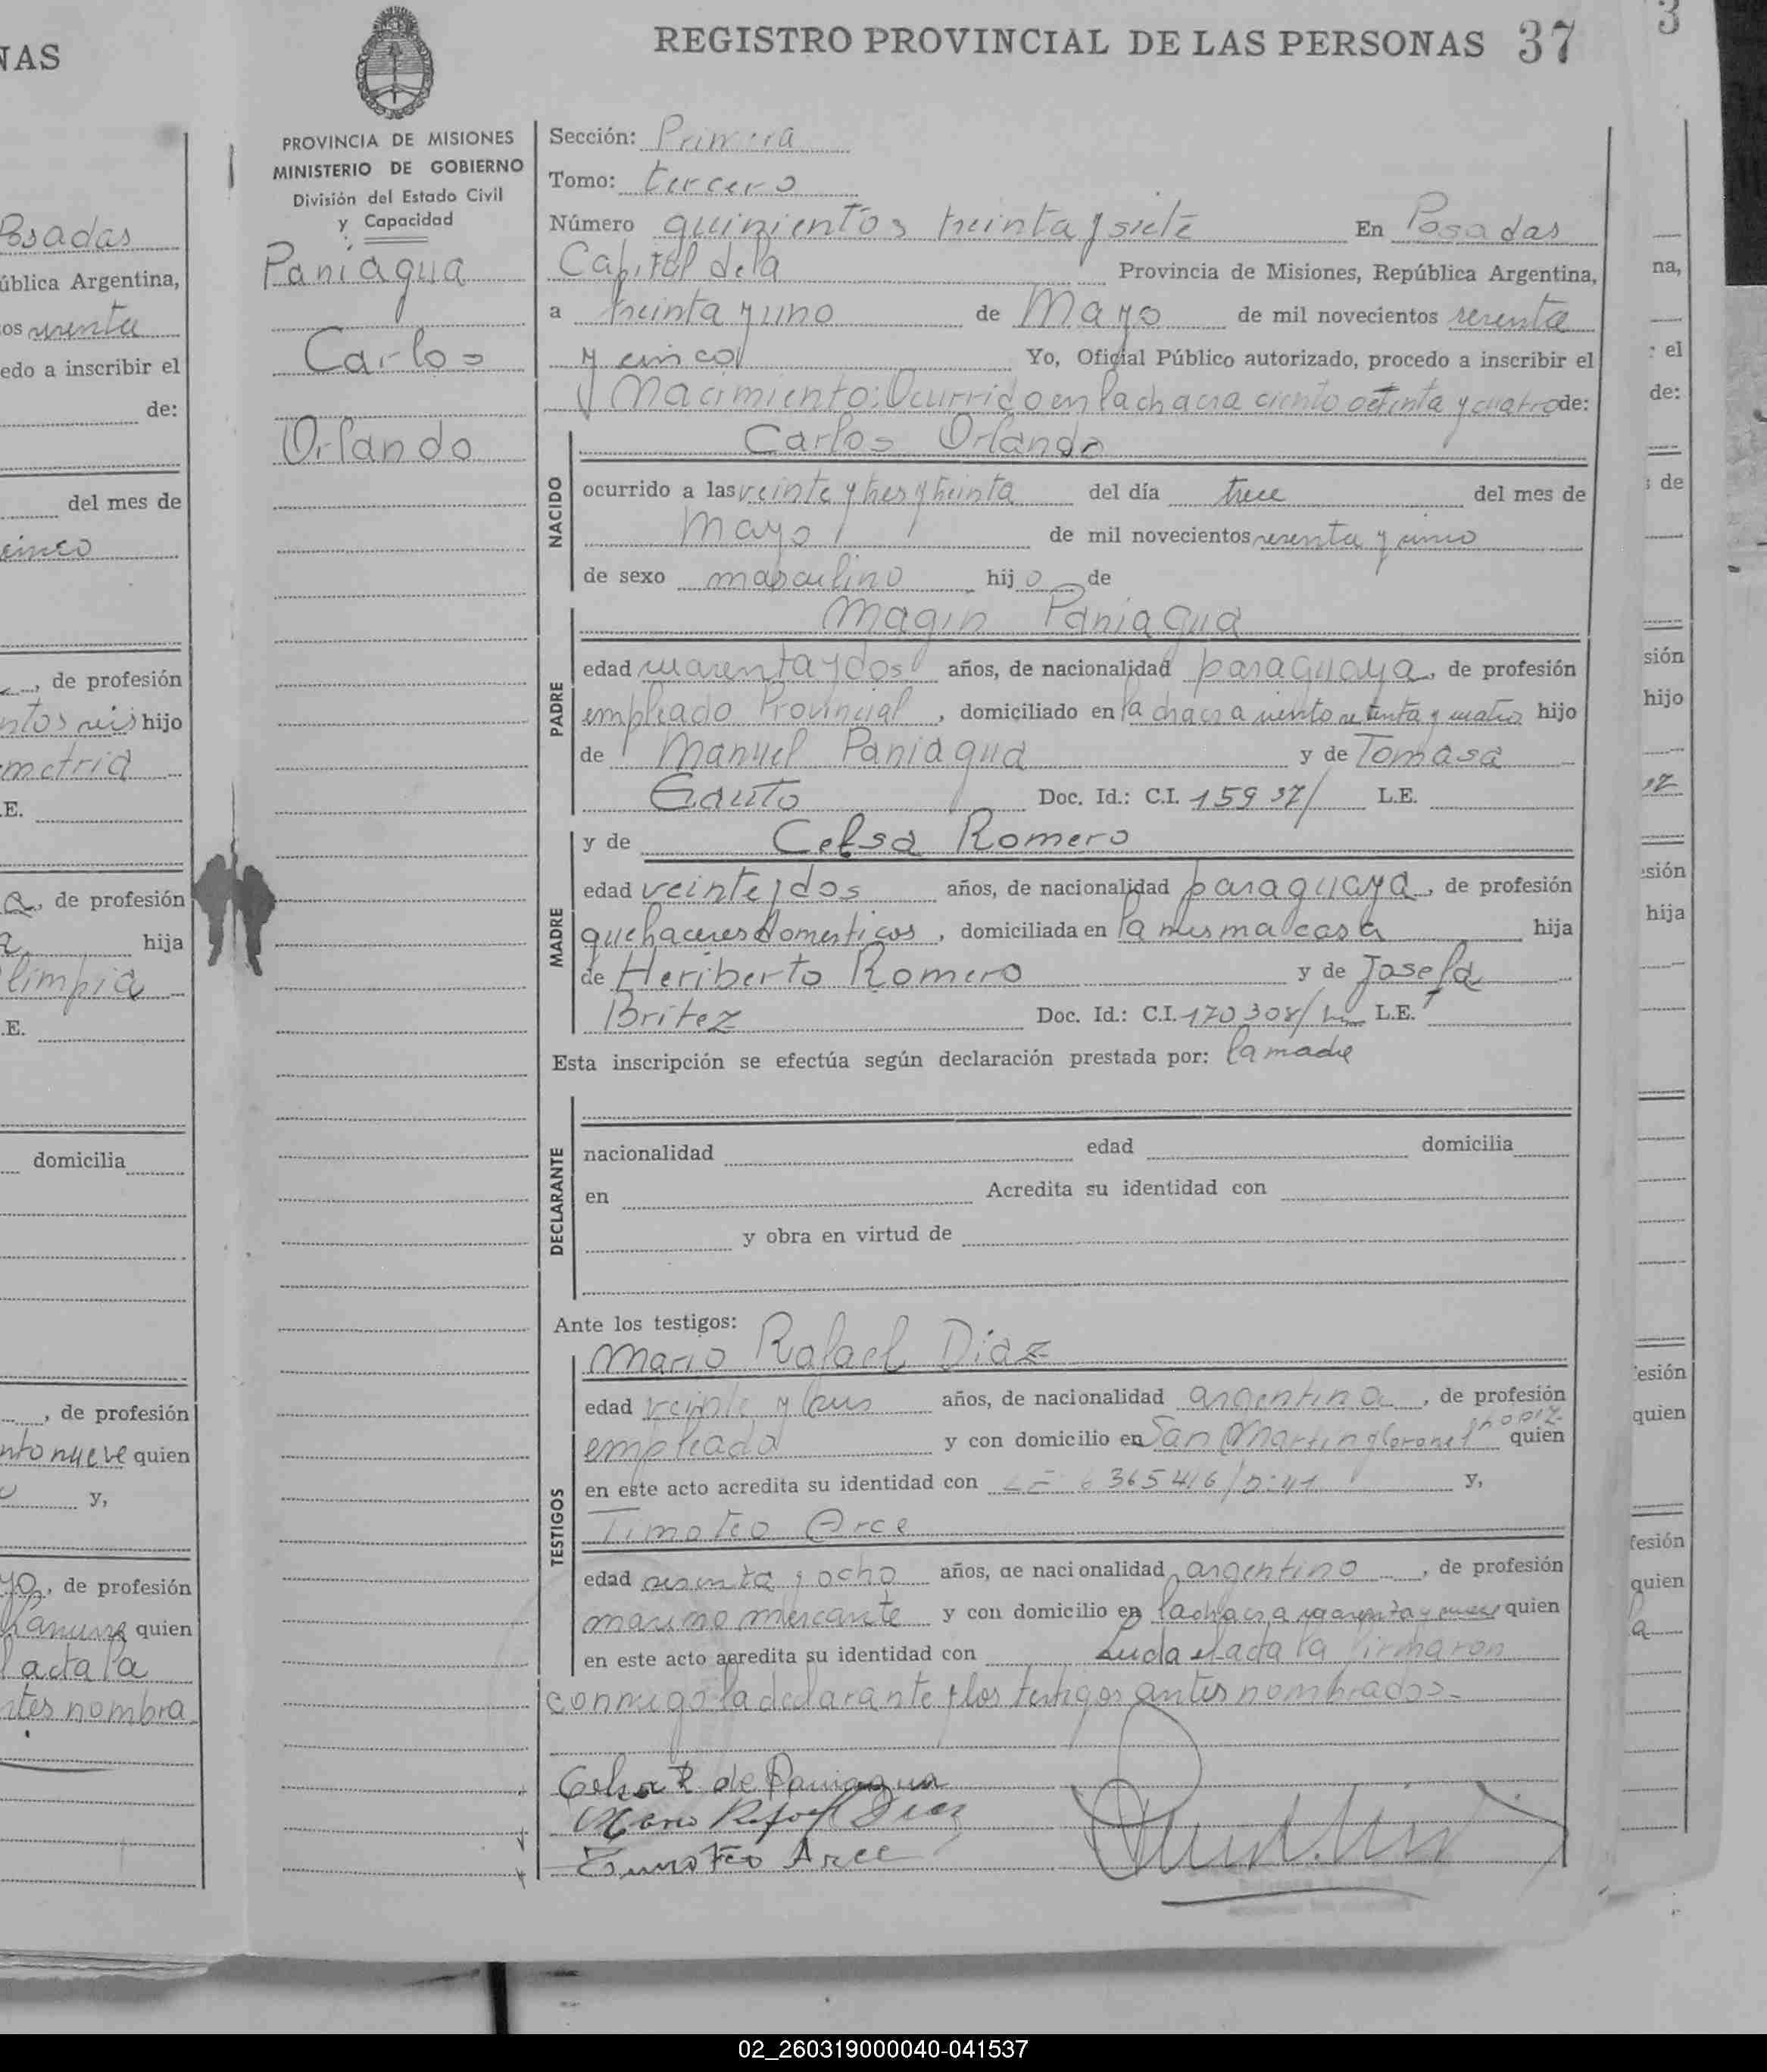 REGISTRO PROVINCIAL DE LAS PERSONAS 37
PROVINCIA DE MISIONES
MINISTERIO DE GOBIERNO
División del Estado Civil
y Capacidad
Paniagua
Carlos
Orlando
Sección: Primera
Tomo: tercero
Número quinientos treinta y siete En Posadas
Capital de la Provincia de Misiones, República Argentina,
a treinta y uno de Mayo de mil novecientos sesenta
y cinco Yo, Oficial Público autorizado, procedo a inscribir el
Nacimiento: Ocurrido en la chacra ciento setenta y cuatro de:
Carlos Orlando
NACIDO
ocurrido a las veinte y tres y treinta del día trece del mes de
Mayo de mil novecientos sesenta y cinco
de sexo masculino hijo de
Magin Paniagua
PADRE
edad cuarenta y dos años, de nacionalidad paraguaya, de profesión
empleado Provincial, domiciliado en la chacra ciento setenta y cuatro hijo
de Manuel Paniagua y de Tomasa
Gauto Doc. Id.: C.I. 15937/ L.E.
y de Celsa Romero
MADRE
edad veinte y dos años, de nacionalidad paraguaya, de profesión
quehaceres domesticos, domiciliada en la misma casa hija
de Heriberto Romero y de Josefa
Britez Doc. Id.: C.I. 170308/ L.E.
Esta inscripción se efectúa según declaración prestada por: la madre
DECLARANTE
nacionalidad edad domicilia
en Acredita su identidad con
y obra en virtud de
Ante los testigos:
Mario Rafael Diaz
TESTIGOS
edad veinte y años, de nacionalidad argentina, de profesión
empleado y con domicilio en San Martin y Coronel quien
en este acto acredita su identidad con y,
Timoteo Arce
edad sesenta y ocho años, de nacionalidad argentino, de profesión
marino mercante y con domicilio en la chacra quien
en este acto acredita su identidad con Leida el acta la firmaron
conmigo la declarante y los testigos antes nombrados.-
Celsa R. de Paniagua
Mario Rafael Diaz
Timoteo Arce
02_260319000040-041537